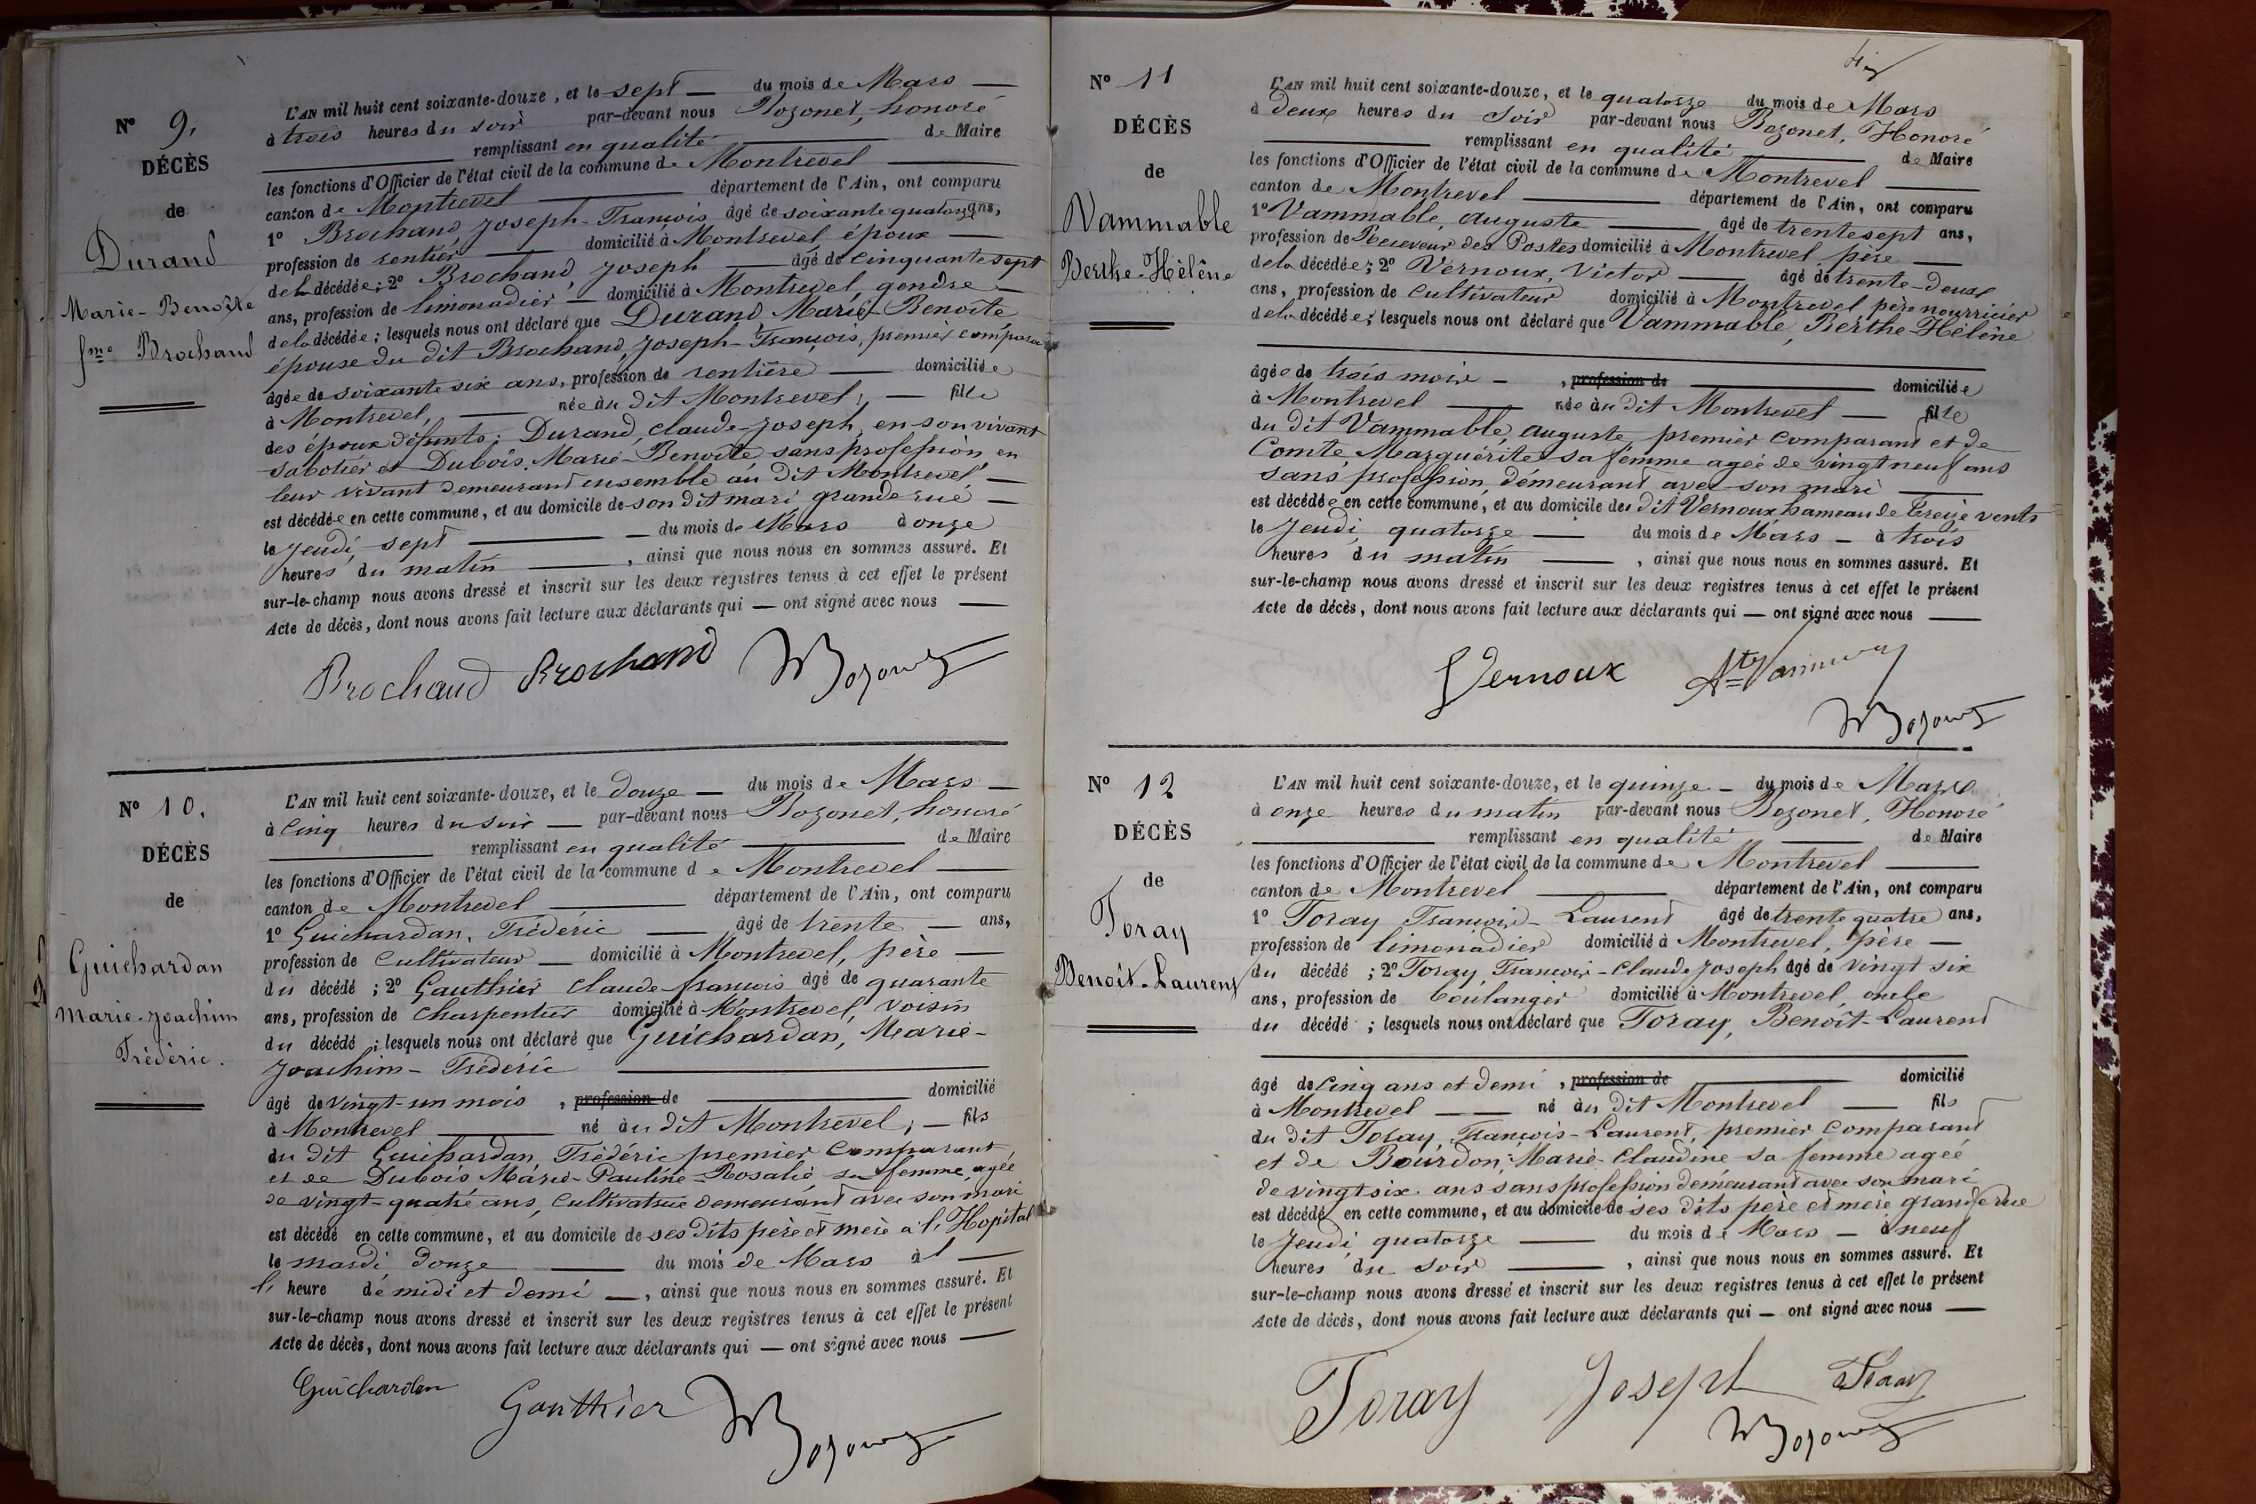 N° 9.
DÉCÈS
de
Durand
Marie-Benoîte
fme Brochand
L'AN mil huit cent soixante-douze, et le sept — du mois de Mars —
à trois heures du soir par-devant nous Bozonet, honoré
remplissant en qualité de Maire
les fonctions d'Officier de l'état civil de la commune de Montrevel
canton de Montrevel département de l'Ain, ont comparu
1° Brochand, Joseph-François âgé de soixante quatorze ans,
profession de rentier domicilié à Montrevel époux —
de la décédée; 2° Brochand, Joseph — âgé de cinquante sept
ans, profession de limonadier — domicilié à Montrevel, gendre —
de la décédée; lesquels nous ont déclaré que Durand Marie-Benoîte
épouse du dit Brochand, Joseph-François, premier compara
âgée de soixante six ans, profession de rentière — domiciliée
à Montrevel, — née au dit Montrevel, — fille
des époux défunts; Durand, Claude-Joseph, en son vivant
sabotier et Dubois, Marie-Benoîte sans profession, en
leur vivant demeurant ensemble au dit Montrevel, —
est décédée en cette commune, et au domicile de son dit mari grande rue —
le Jeudi sept — du mois de Mars à onze
heures du matin —, ainsi que nous nous en sommes assuré. Et
sur-le-champ nous avons dressé et inscrit sur les deux registres tenus à cet effet le présent
Acte de décès, dont nous avons fait lecture aux déclarants qui — ont signé avec nous —
Brochaud Brochand Bozonet
N° 10.
DÉCÈS
de
Guichardan
Marie-Joachim
Frédéric.
L'AN mil huit cent soixante-douze, et le douze — du mois de Mars —
à cinq heures du soir — par-devant nous Bozonet, honoré
remplissant en qualité de Maire
les fonctions d'Officier de l'état civil de la commune de Montrevel
canton de Montrevel département de l'Ain, ont comparu
1° Guichardan, Frédéric — âgé de trente — ans,
profession de Cultivateur — domicilié à Montrevel, père —
du décédé; 2° Gauthier Claude-françois âgé de quarante
ans, profession de Charpentier domicilié à Montrevel, voisin
du décédé; lesquels nous ont déclaré que Guichardan, Marie-
Joachim-Frédéric
âgé de vingt-un mois, profession de domicilié
à Montrevel né au dit Montrevel; — fils
du dit Guichardan, Frédéric premier comparant
et de Dubois Marie-Pauline-Rosalie sa femme, agée
de vingt-quatre ans, cultivatrice demeurant avec son mari
est décédé en cette commune, et au domicile de ses dits père et mère à l'Hopital
le mardi douze du mois de Mars à l —
l' heure de midi et demi —, ainsi que nous nous en sommes assuré. Et
sur-le-champ nous avons dressé et inscrit sur les deux registres tenus à cet effet le présent
Acte de décès, dont nous avons fait lecture aux déclarants qui — ont signé avec nous —
Guichardan Gauthier Bozonet
N° 11
DÉCÈS
de
Vammable
Berthe-Hélène
L'AN mil huit cent soixante-douze, et le quatorze du mois de Mars
à deux heures du soir par-devant nous Bozonet, Honoré
remplissant en qualité de Maire
les fonctions d'Officier de l'état civil de la commune de Montrevel
canton de Montrevel département de l'Ain, ont comparu
1° Vammable, auguste — âgé de trente sept ans,
profession de Receveur des Postes domicilié à Montrevel père —
de la décédée; 2° Vernoux, Victor — âgé de trente-deux
ans, profession de Cultivateur domicilié à Montrevel père nourricier
de la décédée; lesquels nous ont déclaré que Vammable, Berthe-Hélène
âgée de trois mois —, profession de domiciliée
à Montrevel — née au dit Montrevel — fille
du dit Vammable, auguste, premier comparant et de
Comte Marguérite sa femme agée de vingt neuf ans
sans profession, demeurant avec son mari
est décédée en cette commune, et au domicile du dit Vernoux hameau de Treize vents
le Jeudi, quatorze — du mois de Mars — à trois
heures du matin —, ainsi que nous nous en sommes assuré. Et
sur-le-champ nous avons dressé et inscrit sur les deux registres tenus à cet effet le présent
Acte de décès, dont nous avons fait lecture aux déclarants qui — ont signé avec nous —
Vernoux Bozonet
N° 12
DÉCÈS
de
Foray
Benoît-Laurent
L'AN mil huit cent soixante-douze, et le quinze — du mois de Mars
à onze heures du matin par-devant nous Bozonet, Honoré
remplissant en qualité de Maire
les fonctions d'Officier de l'état civil de la commune de Montrevel
canton de Montrevel département de l'Ain, ont comparu
1° Foray François-Laurent âgé de trente quatre ans,
profession de limonadier domicilié à Montrevel, père —
du décédé; 2° Foray, François-Claude Joseph âgé de vingt six
ans, profession de boulanger domicilié à Montrevel, oncle
du décédé; lesquels nous ont déclaré que Foray, Benoît-Laurent
âgé de cinq ans et demi, profession de domicilié
à Montrevel — né au dit Montrevel — fils
du dit Foray, François-Laurent, premier comparant
et de Bourdon, Marie-Claudine sa femme agée
de vingt six ans sans profession demeurant avec son mari
est décédé en cette commune, et au domicile de ses dits père et mère grande rue
le Jeudi quatorze — du mois de Mars — à neuf
heures du soir —, ainsi que nous nous en sommes assuré. Et
sur-le-champ nous avons dressé et inscrit sur les deux registres tenus à cet effet le présent
Acte de décès, dont nous avons fait lecture aux déclarants qui — ont signé avec nous —
Foray Joseph Bozonet